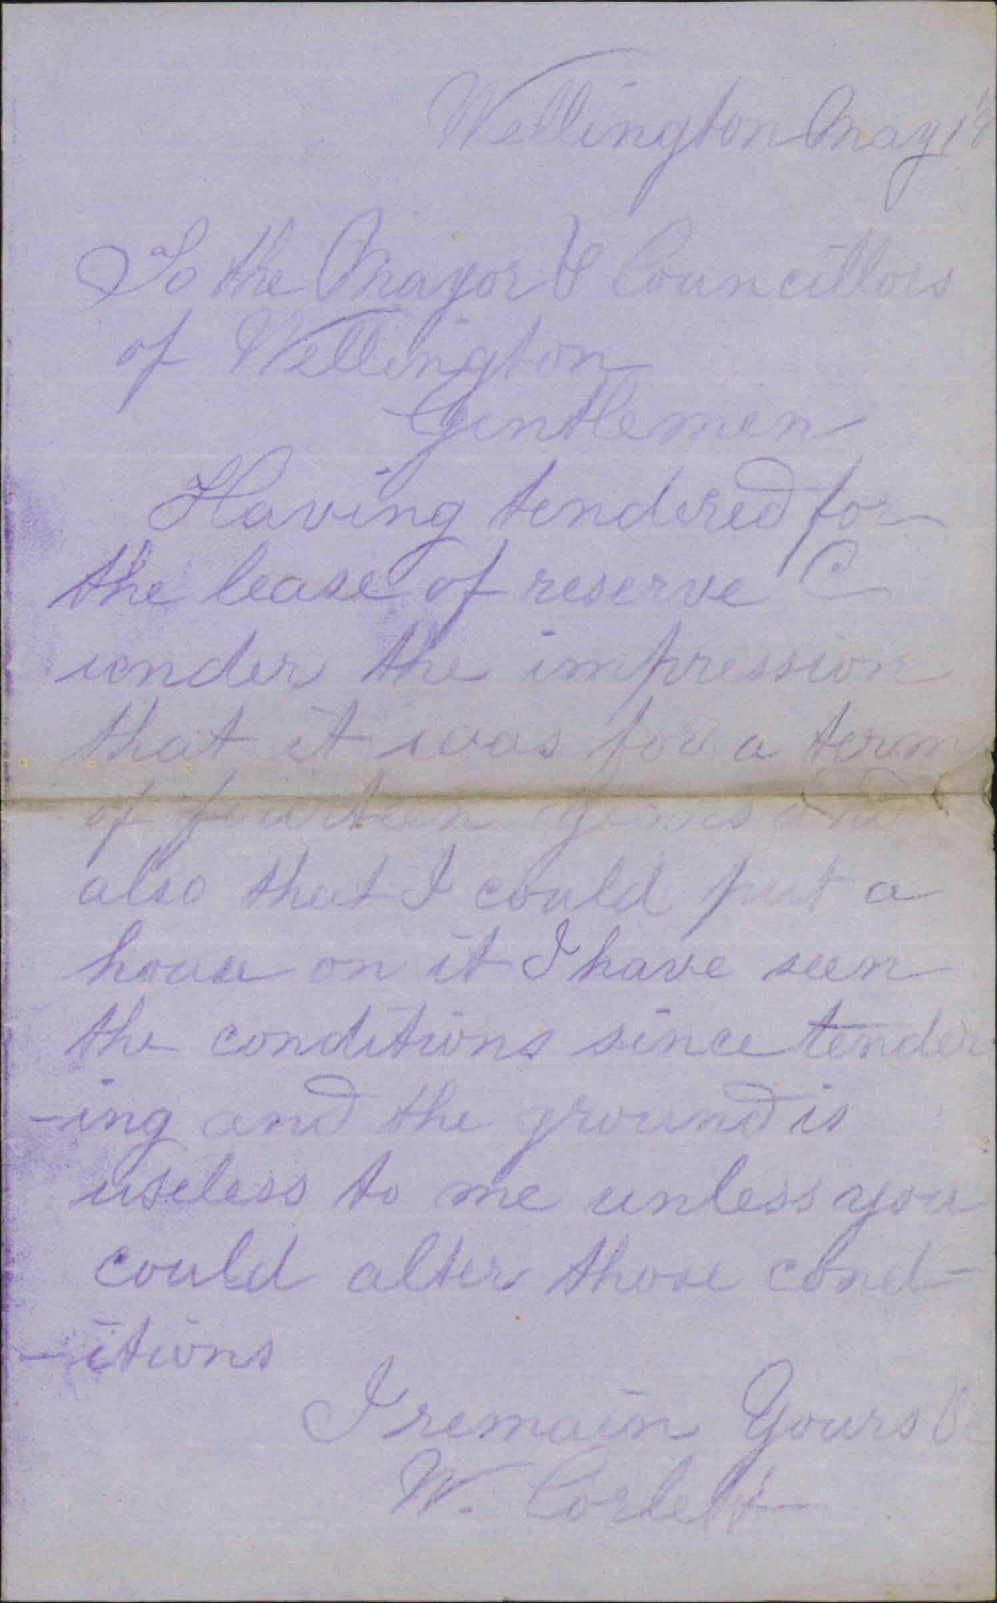 Wellington May 18
To the Mayor & Councillors
of Wellington
Gentlemen
Having tendered for
the lease of reserve C
under the impression
that it was for a term
of fourteen years and
also that I could put a
house on it I have seen
the conditions since tender
-ing and the ground is
useless to me unless you
could alter those cond-
-itions
I remain Yours &c
W. Corlett